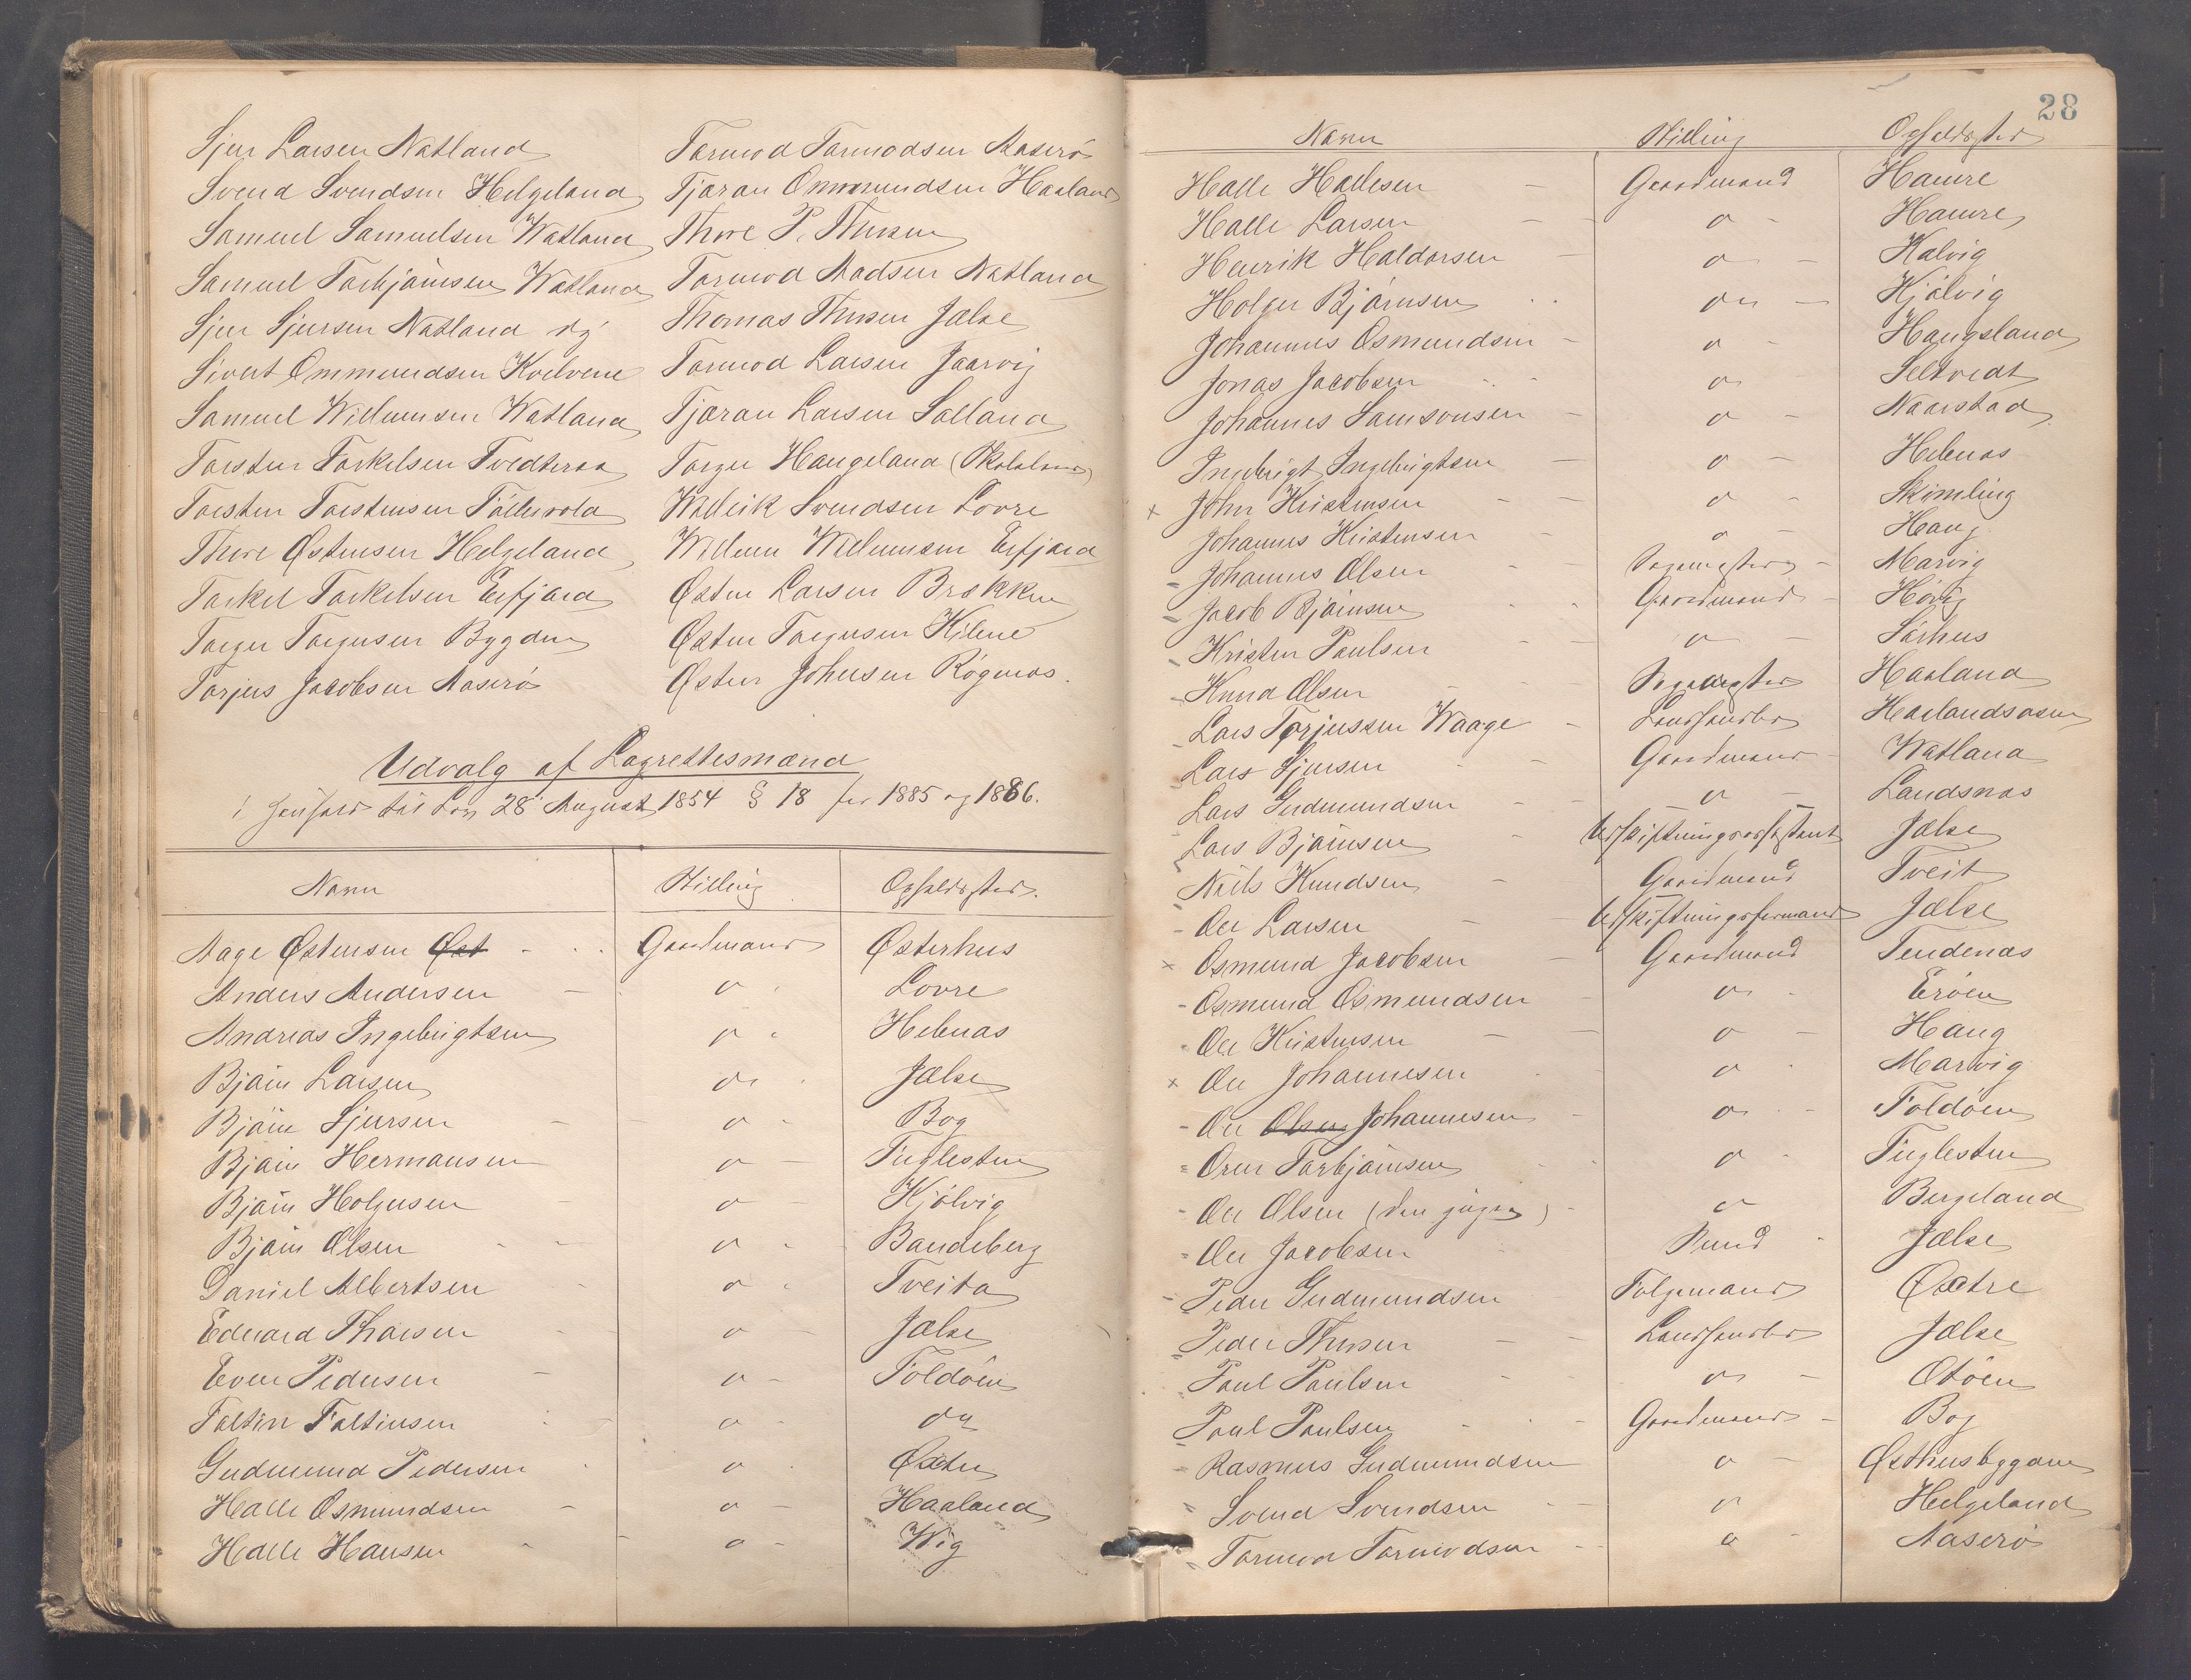 Sjur Larsen Natland
Svend Svendsen Helgeland
Samuel Samuelsen Watland
Samuel Torbjørnsen Watland
Sjur Sjursen Natland
Sivert Ommundsen Kvelvene
Samuel Willumsen Watland
Torsten Torkelsen Tvedteraa
Torsten Torstensen
Thore Østensen Helgeland
Torkel Torkelsen Erfjord
Torger Torgersen Bygden
Torjus Jacobsen Aaserø
Tormod Tormodsen Aaserø
Tjøran Ommundsen Haaland
Thore P. Thusen
Tormod Madsen Natland
Thomas Thusen Jælse
Tormod Larsen Jaarvig
Tjæran Larsen Salland
Torger Haugeland
Wallrik Svendsen Lovre
Willum Willumsen Erfjord
Østen Larsen Brekken
Østen Torgersen Hilene
Østen Johnsen Røgenæs.
Udvalg af Lagrettesmænd
i Henhold til Lov 28 August 1854 § 18 for 1885 og 1886.
Navn Stilling Opholdssted.
Aage Østensen Øst Gaardmand Østerhus
Anders Andersen do Lovre
Andreas Ingebrigtsen do Hebnæs
Bjørn Larsen do Jælse
Bjørn Sjursen do Bog
Bjørn Hermansen do Fuglesten
Bjørn Holgersen do Kjølvig
Bjørn Olsen do Bandeberg
Daniel Albertsen do Tveita
Edvard Thorsen do Jælse
Even Pedersen do Foldøen
Faltin Faltinsen do do
Gudmund Pedersen do Østre
Halle Osmundsen do Haaland
Halle Hansen do Wig
28
Navn Stilling Opholdssted
Halle Hallesen Gaardmand Hamre
Halle Larsen do Hamre
Henrik Haldorsen do Kalvig
Holger Bjørnsen do Kjølvig
Johannes Osmundsen do Haugsland
Jonas Jacobsen do Seltvedt
Johannes Samsonsen do Naarstad
Ingebrigt Ingebrigtsen do Hebnæs
x John Kristensen do Skimling
Johannes Kristensen do Haug
- Johannes Olsen Marvig
- Jacob Bjørnsen Gaardmand Høvig
- Kristen Paulsen do Sørhus
- Knud Olsen Haaland
- Lars Torjussen Waage Landhandler Haalandsosen
- Lars Sjursen Gaardmand Watland
- Lars Gudmundsen do Landsnæs
- Lars Bjørnsen Udskiftningsassistent Jælse
- Niels Knudsen Gaardmand Tveit
- Ole Larsen Udskiftningsformand Jælse
x Osmund Jacobsen Gaardmand Tendenæs
- Osmund Osmundsen do Erøen
- Ole Kristensen do Haug
x Ole Johannesen do Marvig
- Ole Olsen Johannesen do Foldøen
- Orm Torbjørnsen do Fuglesten
- Ole Olsen (den yngre) do Bergeland
- Ole Jacobsen Jælse
- Peder Gudmundsen Folgemand Østre
- Peder Thusen Landhandler Jælse
- Paul Paulsen do Otøen
- Paul Paulsen Gaardmand Bog
- Rasmus Gudmundsen do Østhusbygden
- Svend Svendsen do Helgeland
- Tormod Tormodsen do Aaserø